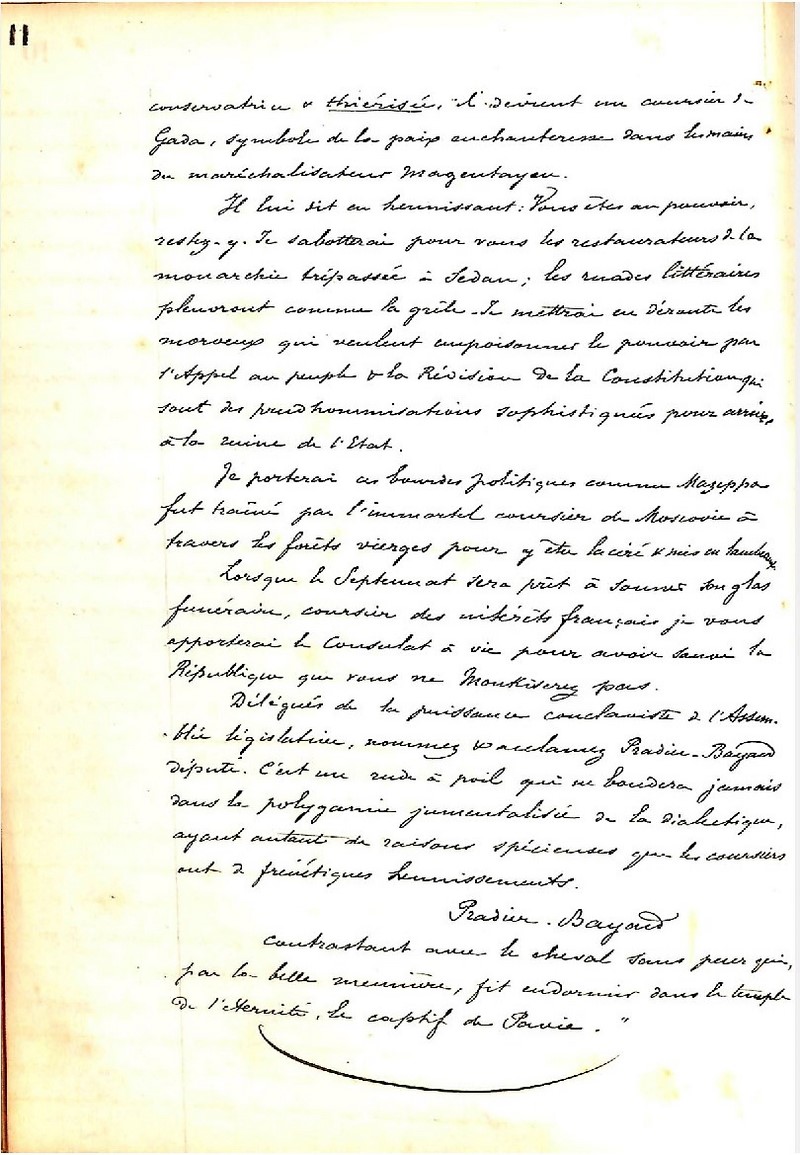 11
conservatrice & thiérisée, il devient un coursier de
Gada, symbole de la paix enchanteresse dans les mains
du maréchalisateur Magentayen.
Il lui dit en hennissant : Vous êtes au pouvoir,
restez-y. Je sabotterai pour vous les restaurateurs de la
monarchie trépassée à Sedan ; les ruades littéraires
pleuvront comme la grêle. Je mettrai en déroute les
morveux qui veulent empoisonner le pouvoir par
l'Appel au peuple & la Révision de la Constitution qui
sont des prudhommisations sophistiqués pour arriver
à la ruine de l'Etat.
Je porterai ces bourdes politiques comme Mazeppa
fut traîné par l'immortel coursier de Moscovie à
travers les forêts vierges pour y être laceré & mis en lambeaux.
Lorsque le Septennat sera prêt à sonner son glas
funéraire, coursier des intérêts français je vous
apporterai le Consulat à vie pour avoir sauvé la
République que vous ne Monkiserez pas.
Délégués de la puissance conclaviste de l'Assem-
-blée législative, nommez & acclamez Pradier-Bayard
député. C'est un rude à poil qui ne boudera jamais
dans la polygamie jumentalisée de la dialectique,
ayant autant de raisons spécieuses que les coursiers
ont de frénétiques hennissements.
Pradier-Bayard
contrastant avec le cheval sans peur qui,
par la belle meunière, fit endormir dans le temple
de l'eternité, le captif de Pavie."